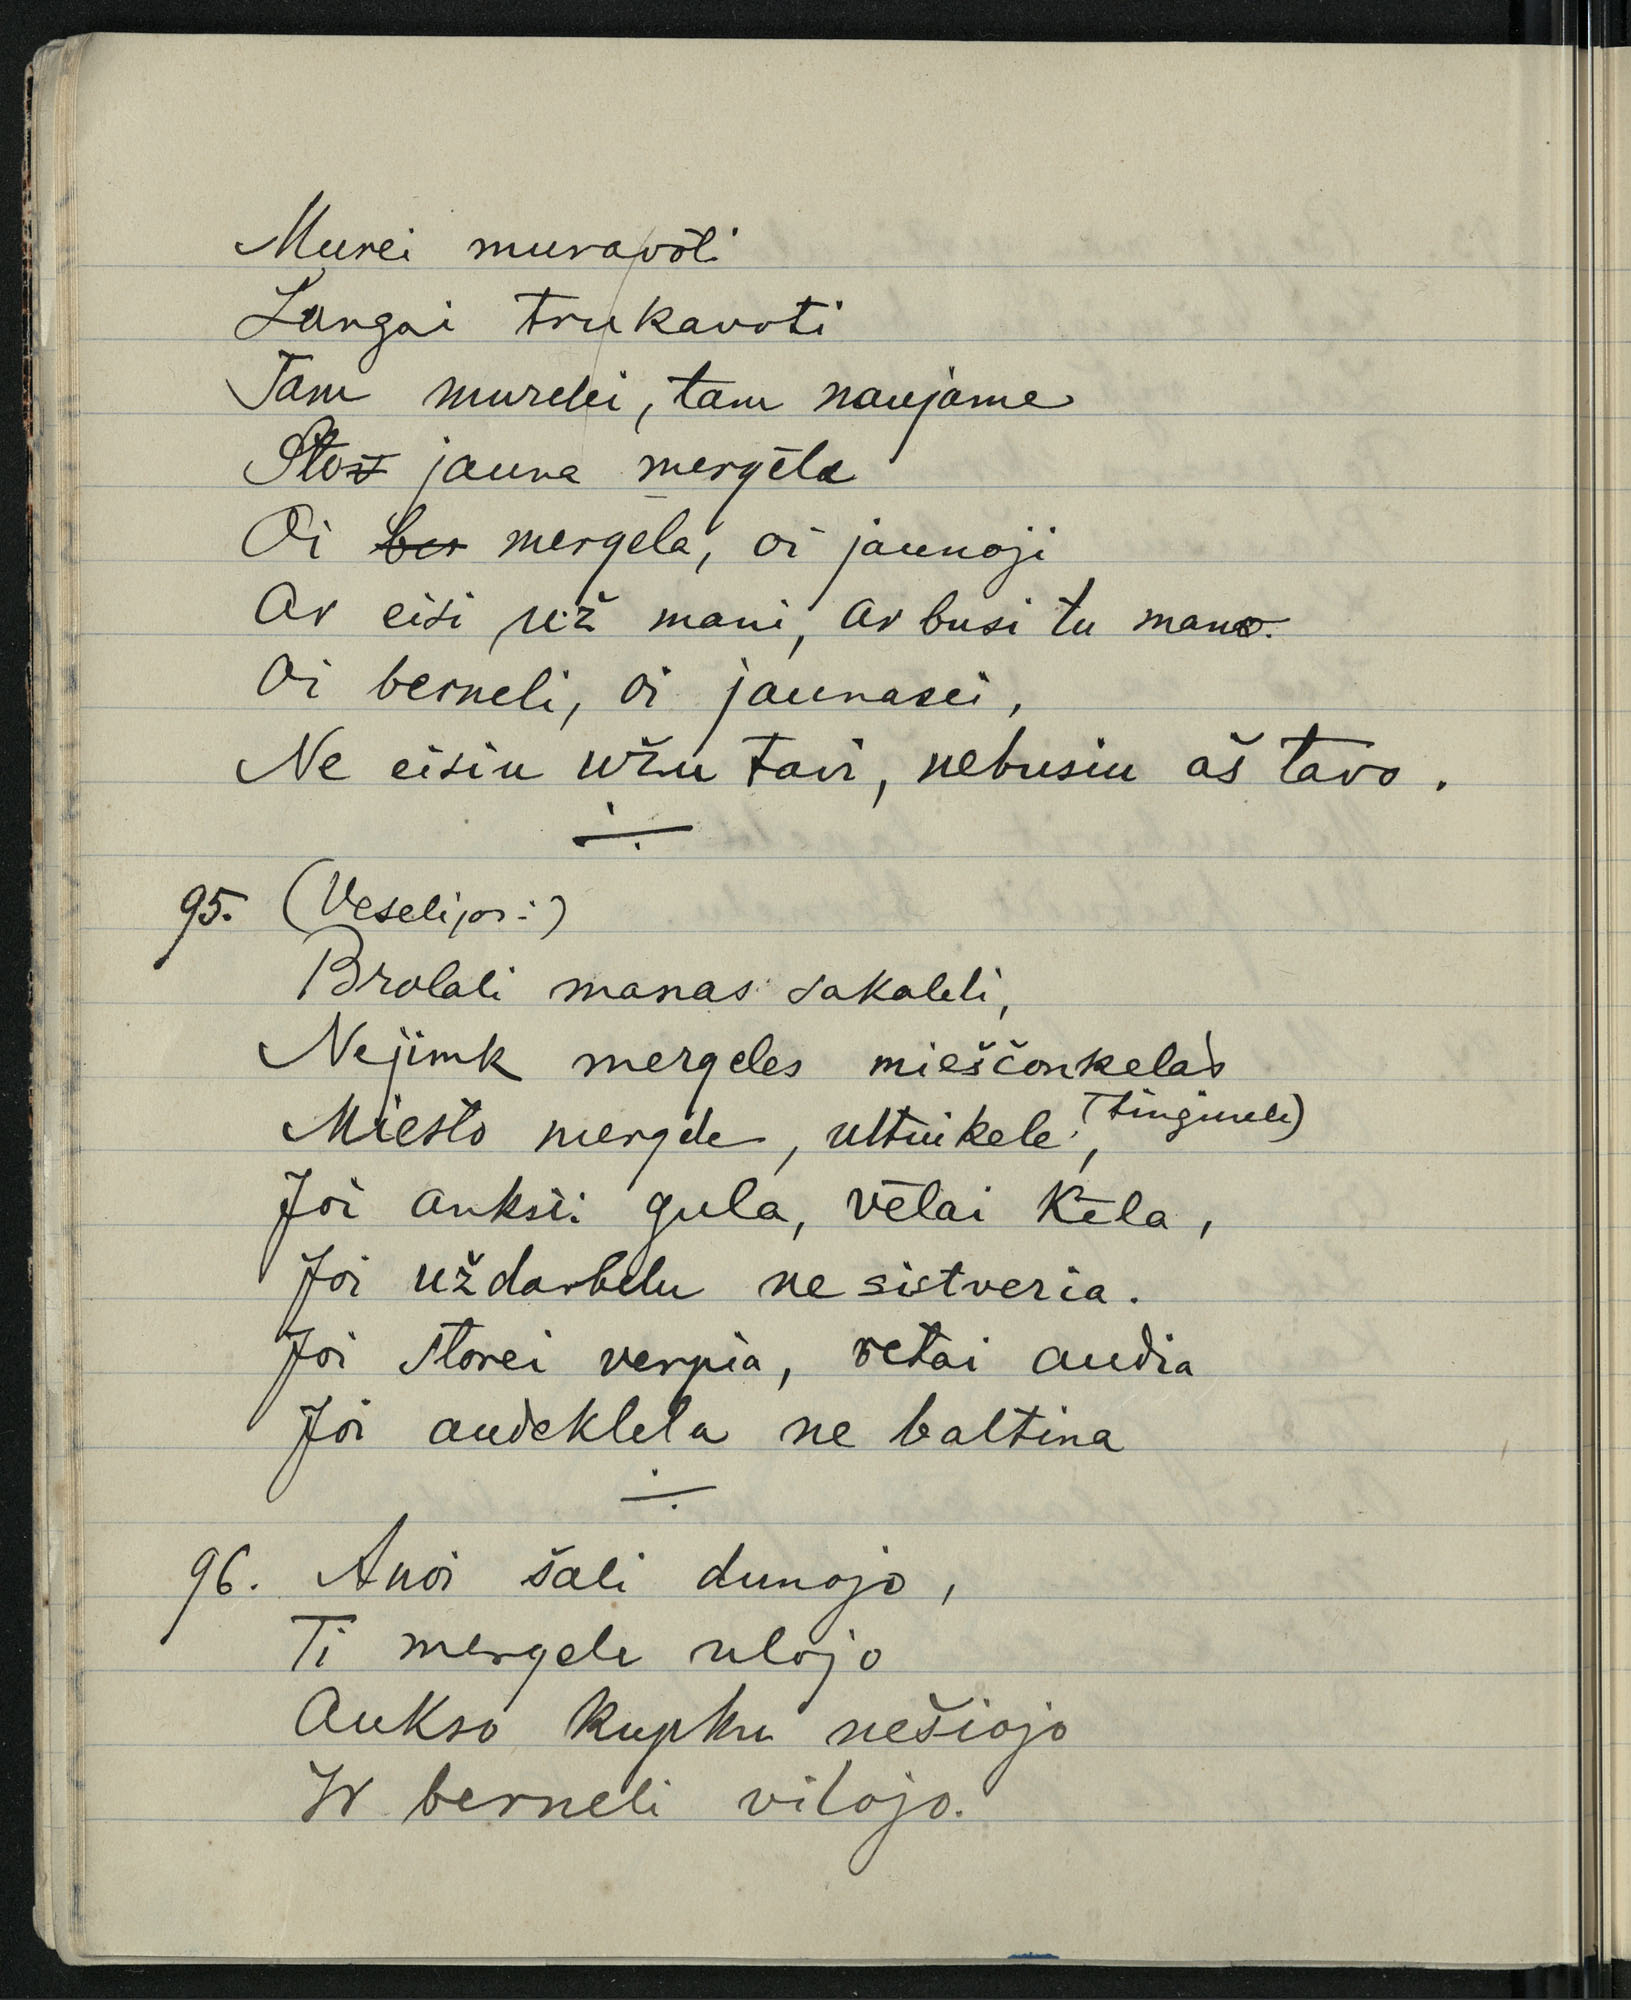 Murei muravoti
Langai trukavoti
Tam murelei, tam naujame
Sto jauna mergēla
Oi ber mergela, oi jaunoji
Ar eisi už mani, ar busi tu mano.
Oi berneli, oi jaunasei,
Ne eisiu užu tavi, nebusiu aš tavo.
95. (Veselijoi:)
Brolali manas sakaleli,
Nejimk mergeles mieščonkelas
Miesto mergele, ultuikele, (tinginele)
Joi anksti gula, vēlai kēla,
Joi uždarbelu ne sistveria.
Joi storei verpia, retai audia
Joi audeklela ne baltina
96. Anoi šali dunojo,
Ti mergele ulojo
Aukso kupku nešiojo
Ir berneli vilojo.